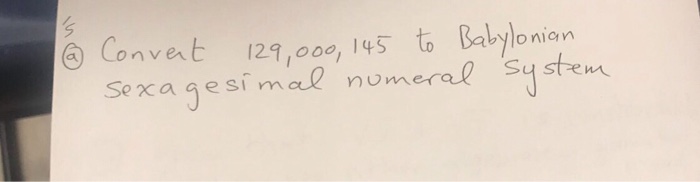 's
(a) Convert 129,000,145 to Babylonian
sexagesimal numeral system